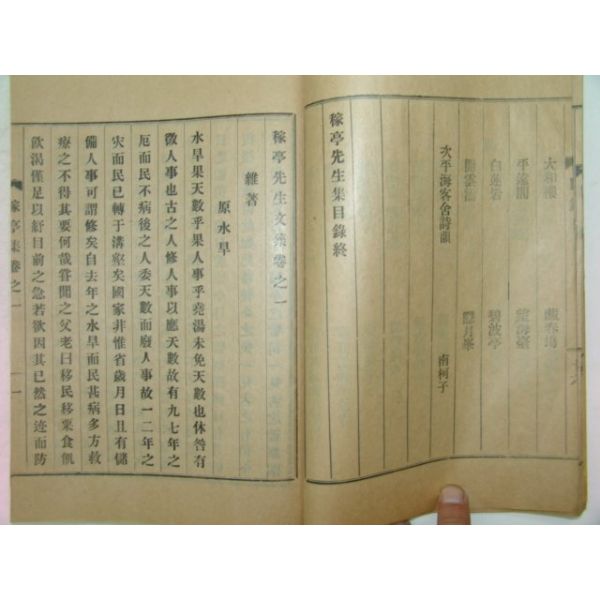 太和樓
平遠閣
白蓮岩 碧波亭
次平海客舍詩韻 南柯子
稼亭先生集目錄終
稼亭先生文集卷之一
雜著
原水旱
水旱果天數乎果人事乎堯湯未免天數也休咎有
徵人事也古之人修人事以應天數故有九七年之
厄而民不病後之人委天數而廢人事故一二年之
灾而民已轉于溝壑矣國家非惟省歲月日且有儲
備人事可謂修矣自去年之水旱而民甚病多方救
療之不得其要何哉嘗聞之父老曰移民移粟食飢
飲渴僅足以紓目前之急若欲因其已然之迹而防
稼亭集卷之一
一